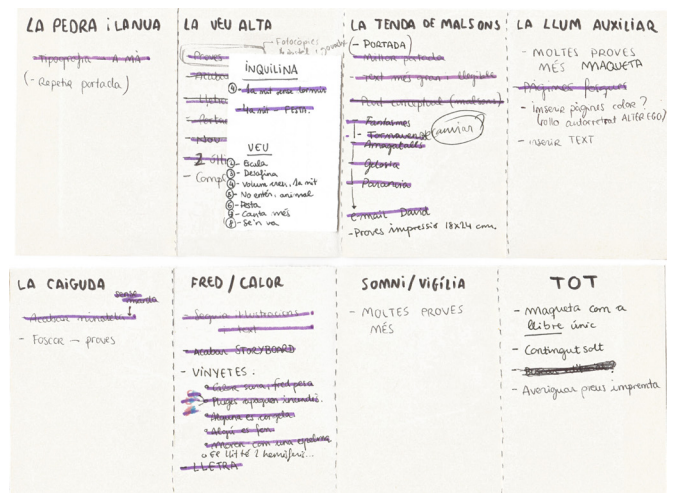 LA PEDRA i LANUA
Tipografia A MÀ
(- Repetir portada)
LA VEU ALTA
Fotocòpies
Proves
Acaba
- Comp
INQUILINA
VEU
① - Escala
③ - Desafina
④ - Volum men, 1a nit
⑤ - No entén, animal
⑥ - Festa
⑦ - Canta més
⑧ - Se'n va
LA TENDA DE MALSONS
(- PORTADA)
Millor portada
Text més gran llegible
Post conceptual (malsons)
Fantasmes
(canviar)
Amagatalls
Gelosia
Paranoia
e-mail David
- Proves impressió 18x24 cm.
LA LLUM AUXILIAR
- MOLTES PROVES
MÉS MAQUETA
Pàgines fosques
- Inserir pàgines color?
(rollo autorretrat ALTER EGO)
- inserir TEXT
LA CAIGUDA
sense
Acabar
- Foscor - proves
FRED / CALOR
- Segona il·lustracions
+ text
- Acabar STORYBOARD
- VINYETES:
Pluges apaguen incendis.
Alguna es congela
Algú es fon
- LLETRA
SOMNI / VIGÍLIA
- MOLTES PROVES
MÉS
TOT
- Maqueta com a
llibre únic
- Contingut solt
- Averiguar preus impremta